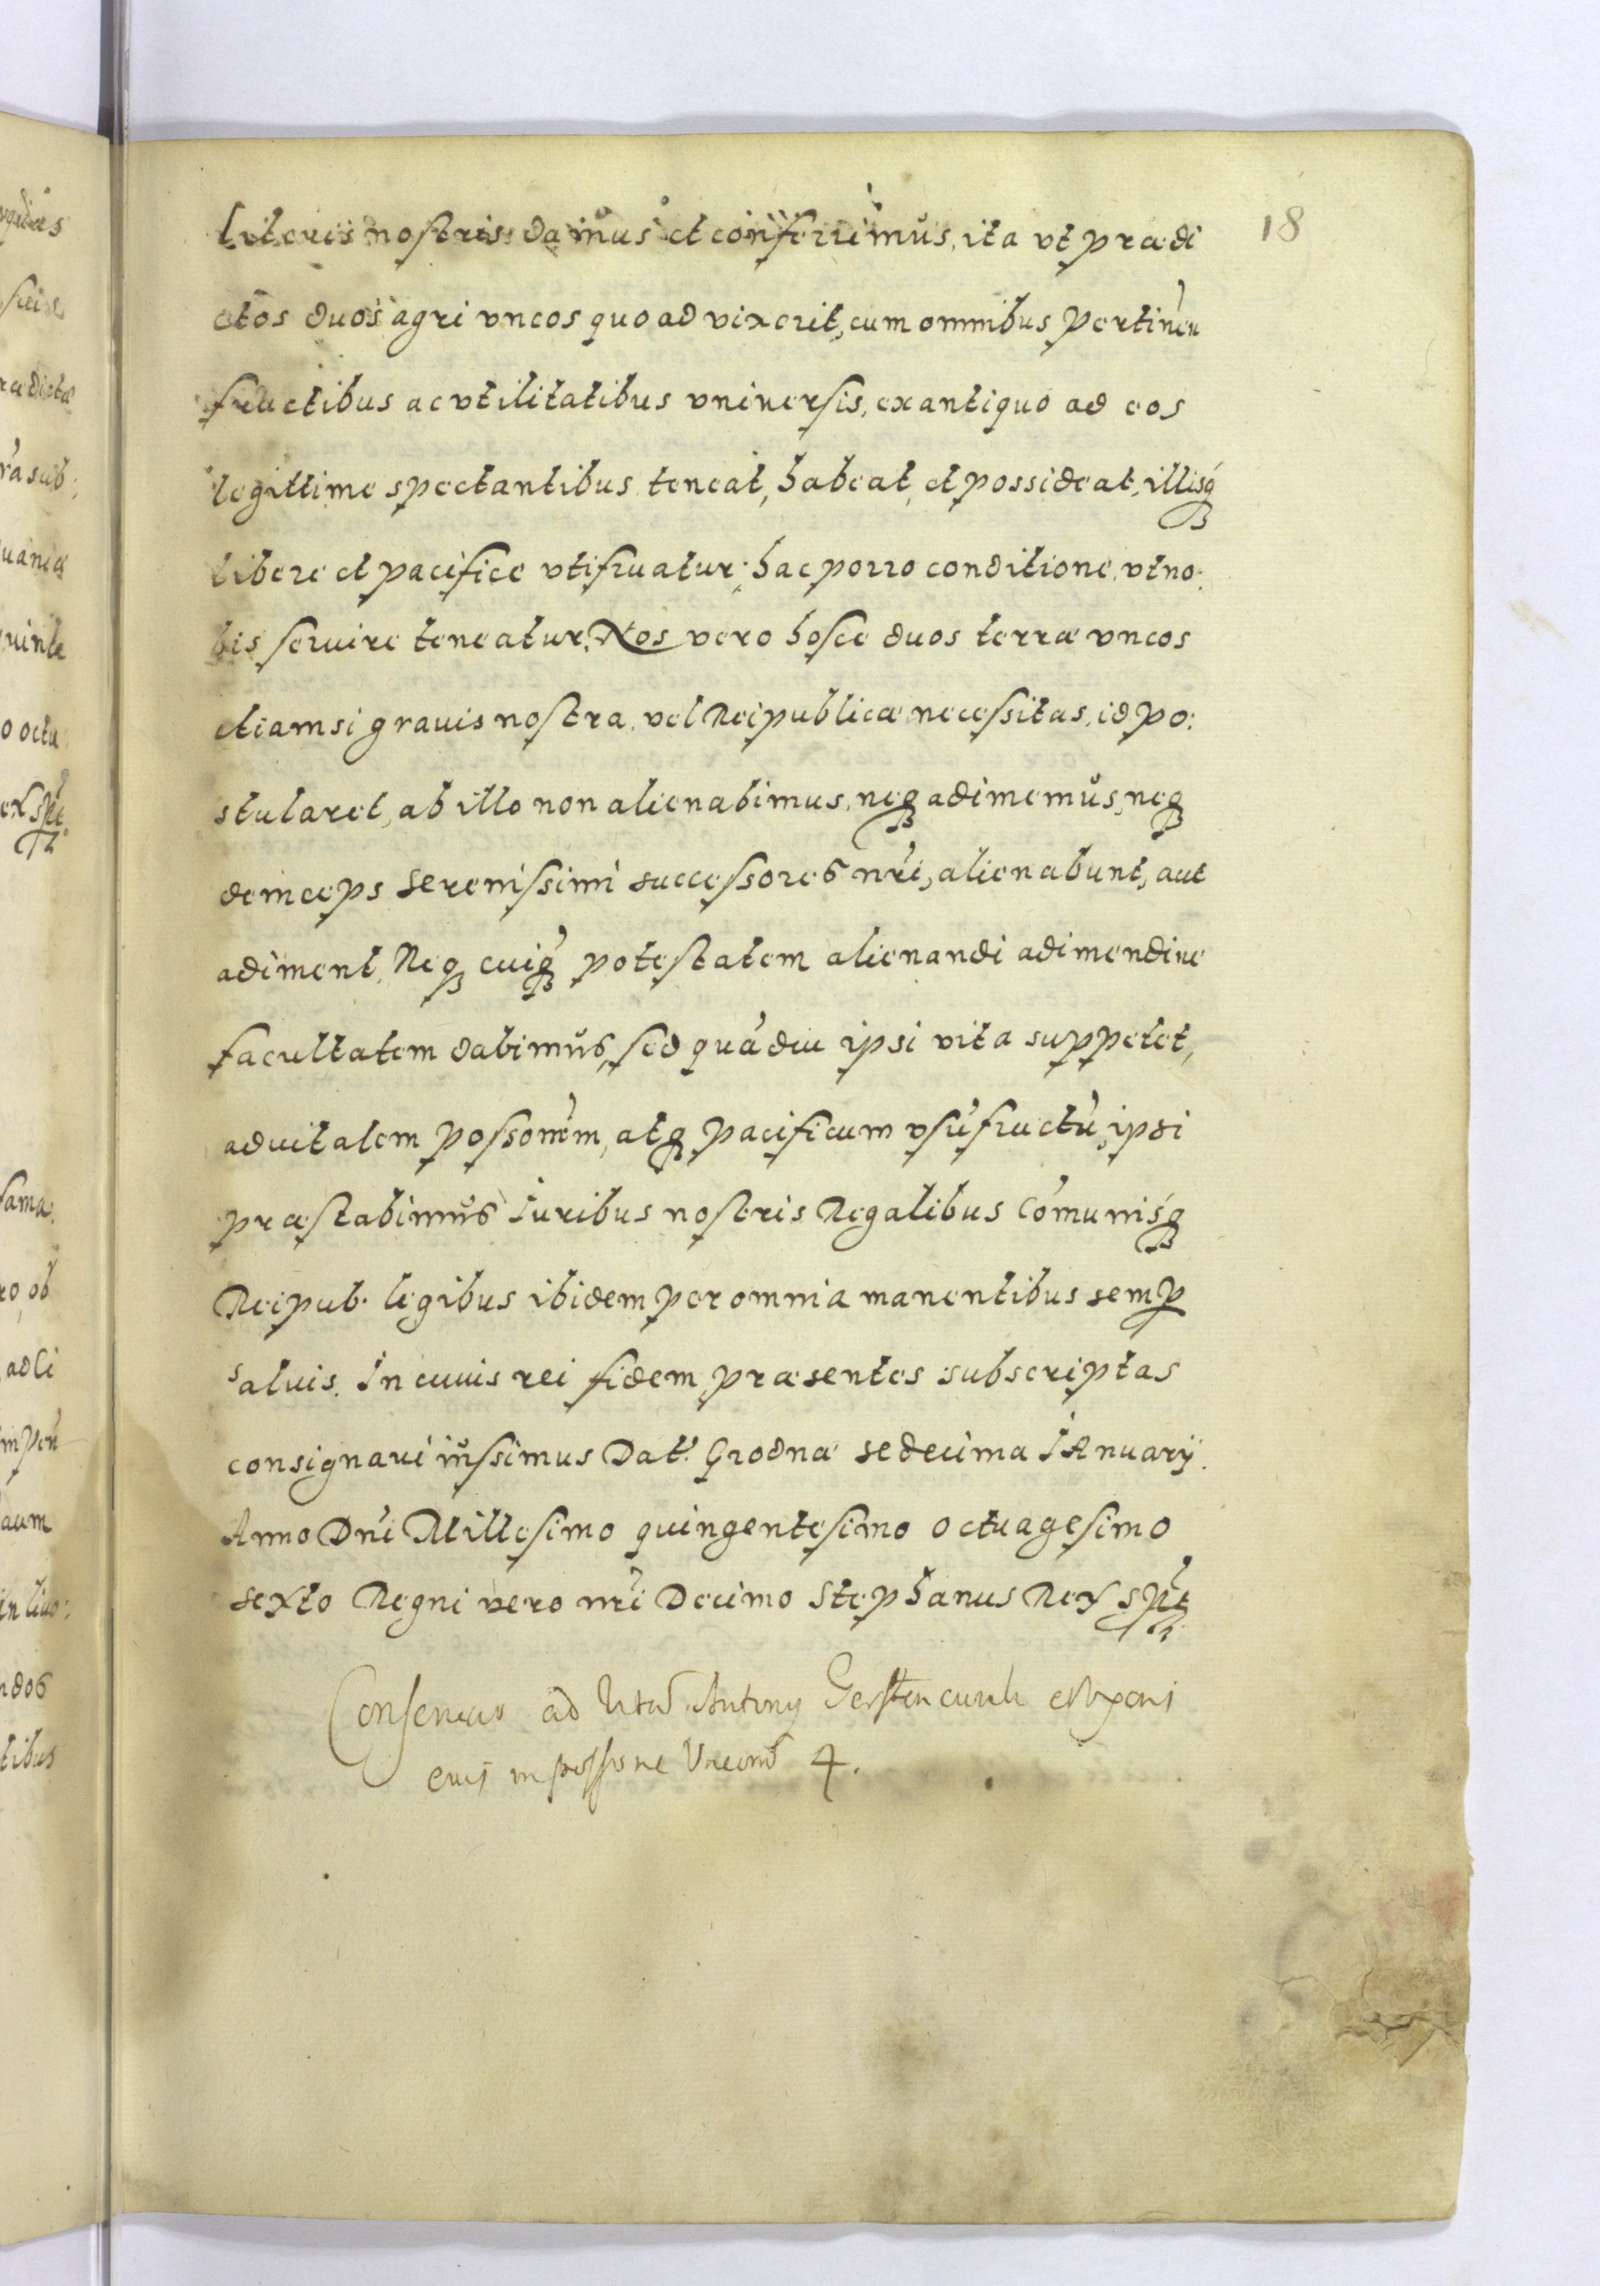 18
literis nostris damus et conferrimus, ita vt praedi
ctos duos agri vncos quoad vixerit, cum omnibus pertineñ
fructibus ac vtilitatibus vniuersis, ex antiquo ad eos
legittime spectantibus teneat, habeat, et possideat, illisq́
libere et pacifice vtifruatur, hac porro conditione, vt no:
bis seruire teneatur, Nos vero hosce duos terrae vncos
etiamsi grauis nostra, vel Reipublicae necessitas, id po:
stularet, ab illo non alienabimus, neq adimemus, neq
deinceps serenissimi successores nrī, alienabunt, aut
adiment, Neq cuiq́ potestatem alienandi adimendiue
facultatem dabimus, sed quādiu ipsi vita suppetet,
aduitalem possonēm, atq pacificum vsūfructū, ipsi
praestabimus Iuribus nostris Regalibus Cōmunisq́
Reipub. legibus ibidem per omnia manentibus semp
saluis. In cuius rei fidem praesentes subscriptas
consignari iussimus Dat. Grodnae sedecima IAnuarÿ.
Anno Dnī Millesimo quingentesimo octuagesimo
sexto Regni vero nrī Decimo Stephanus Rex spt
Consensus ad Antony
eius in possone Vncorū 4.